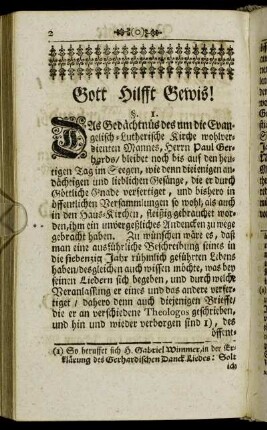 2
Gott Hilfft Gewis!
§. 1.
DAs Gedächtnüs des um die Evan-
gelisch-Lutherische Kirche wohlver-
dienten Mannes, Herrn Paul Ger-
hards/ bleibet noch bis auf den heu-
tigen Tag im Seegen, wie denn dieienigen an-
dächtigen und lieblichen Gesänge, die er durch
Göttliche Gnade verfertiget, und bishero in
öffentlichen Versammlungen so wohl, als auch
in den Haus-Kirchen, fleißig gebrauchet wor-
den, ihm ein unvergeßliches Andencken zu wege
gebracht haben. Zu wünschen wäre es, daß
man eine ausführliche Beschreibung seines in
die siebenzig Jahr rühmlich geführten Lebens
haben/ desgleichen auch wissen möchte, was bey
seinen Liedern sich begeben, und durch welche
Veranlassung er eines und das andere verfer-
tiget/ dahero denn auch diejenigen Brieffe,
die er an verschiedene Theologos geschrieben,
und hin und wieder verborgen sind 1), des
öffent-
(1) So beruffet sich H. Gabriel Wimmer, in der Er-
klärung des Gerhardischen Danck Liedes: Solt
ich/